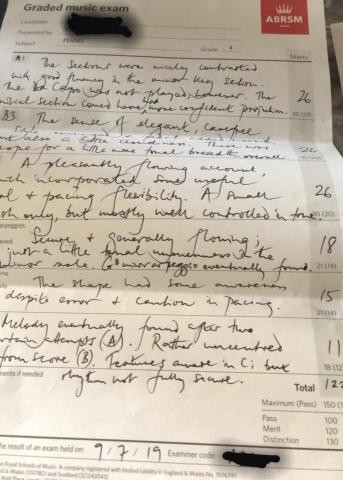 Graded music exam
ABRSM
Candidate
Presented by
Subject PIANO Grade 4
Marks
A1 The sections were nicely contrasted
with good fluency in the minor key section.
The Da Capo was not played, however. The
section could have had more confident projection. 26
30 (20)
B3 The sense of elegant, carefree
a little There was
for a little more tonal breadth overall 26
A pleasantly flowing account,
incorporated some useful
& pacing flexibility. A small
only, but mostly well controlled in tone. 26
30 (20)
arpeggios
Secure & generally flowing;
just a little tonal unevenness in the
minor scale. G minor arpeggio eventually found. 18
21 (14)
The shape had some awareness
despite error & caution in pacing. 15
21 (14)
Melody eventually found after two
attempts (A). Rather uncentred
from score (B). Features aware in C; but 11
18 (12
rhythm not fully secure.
ments if needed
Total 122
Maximum (Pass) 150 (1
Pass 100
Merit 120
Distinction 130
he result of an exam held on: 9/7/19 Examiner code:
Royal Schools of Music. A company registered with limited liability in England & Wales No. 1926395